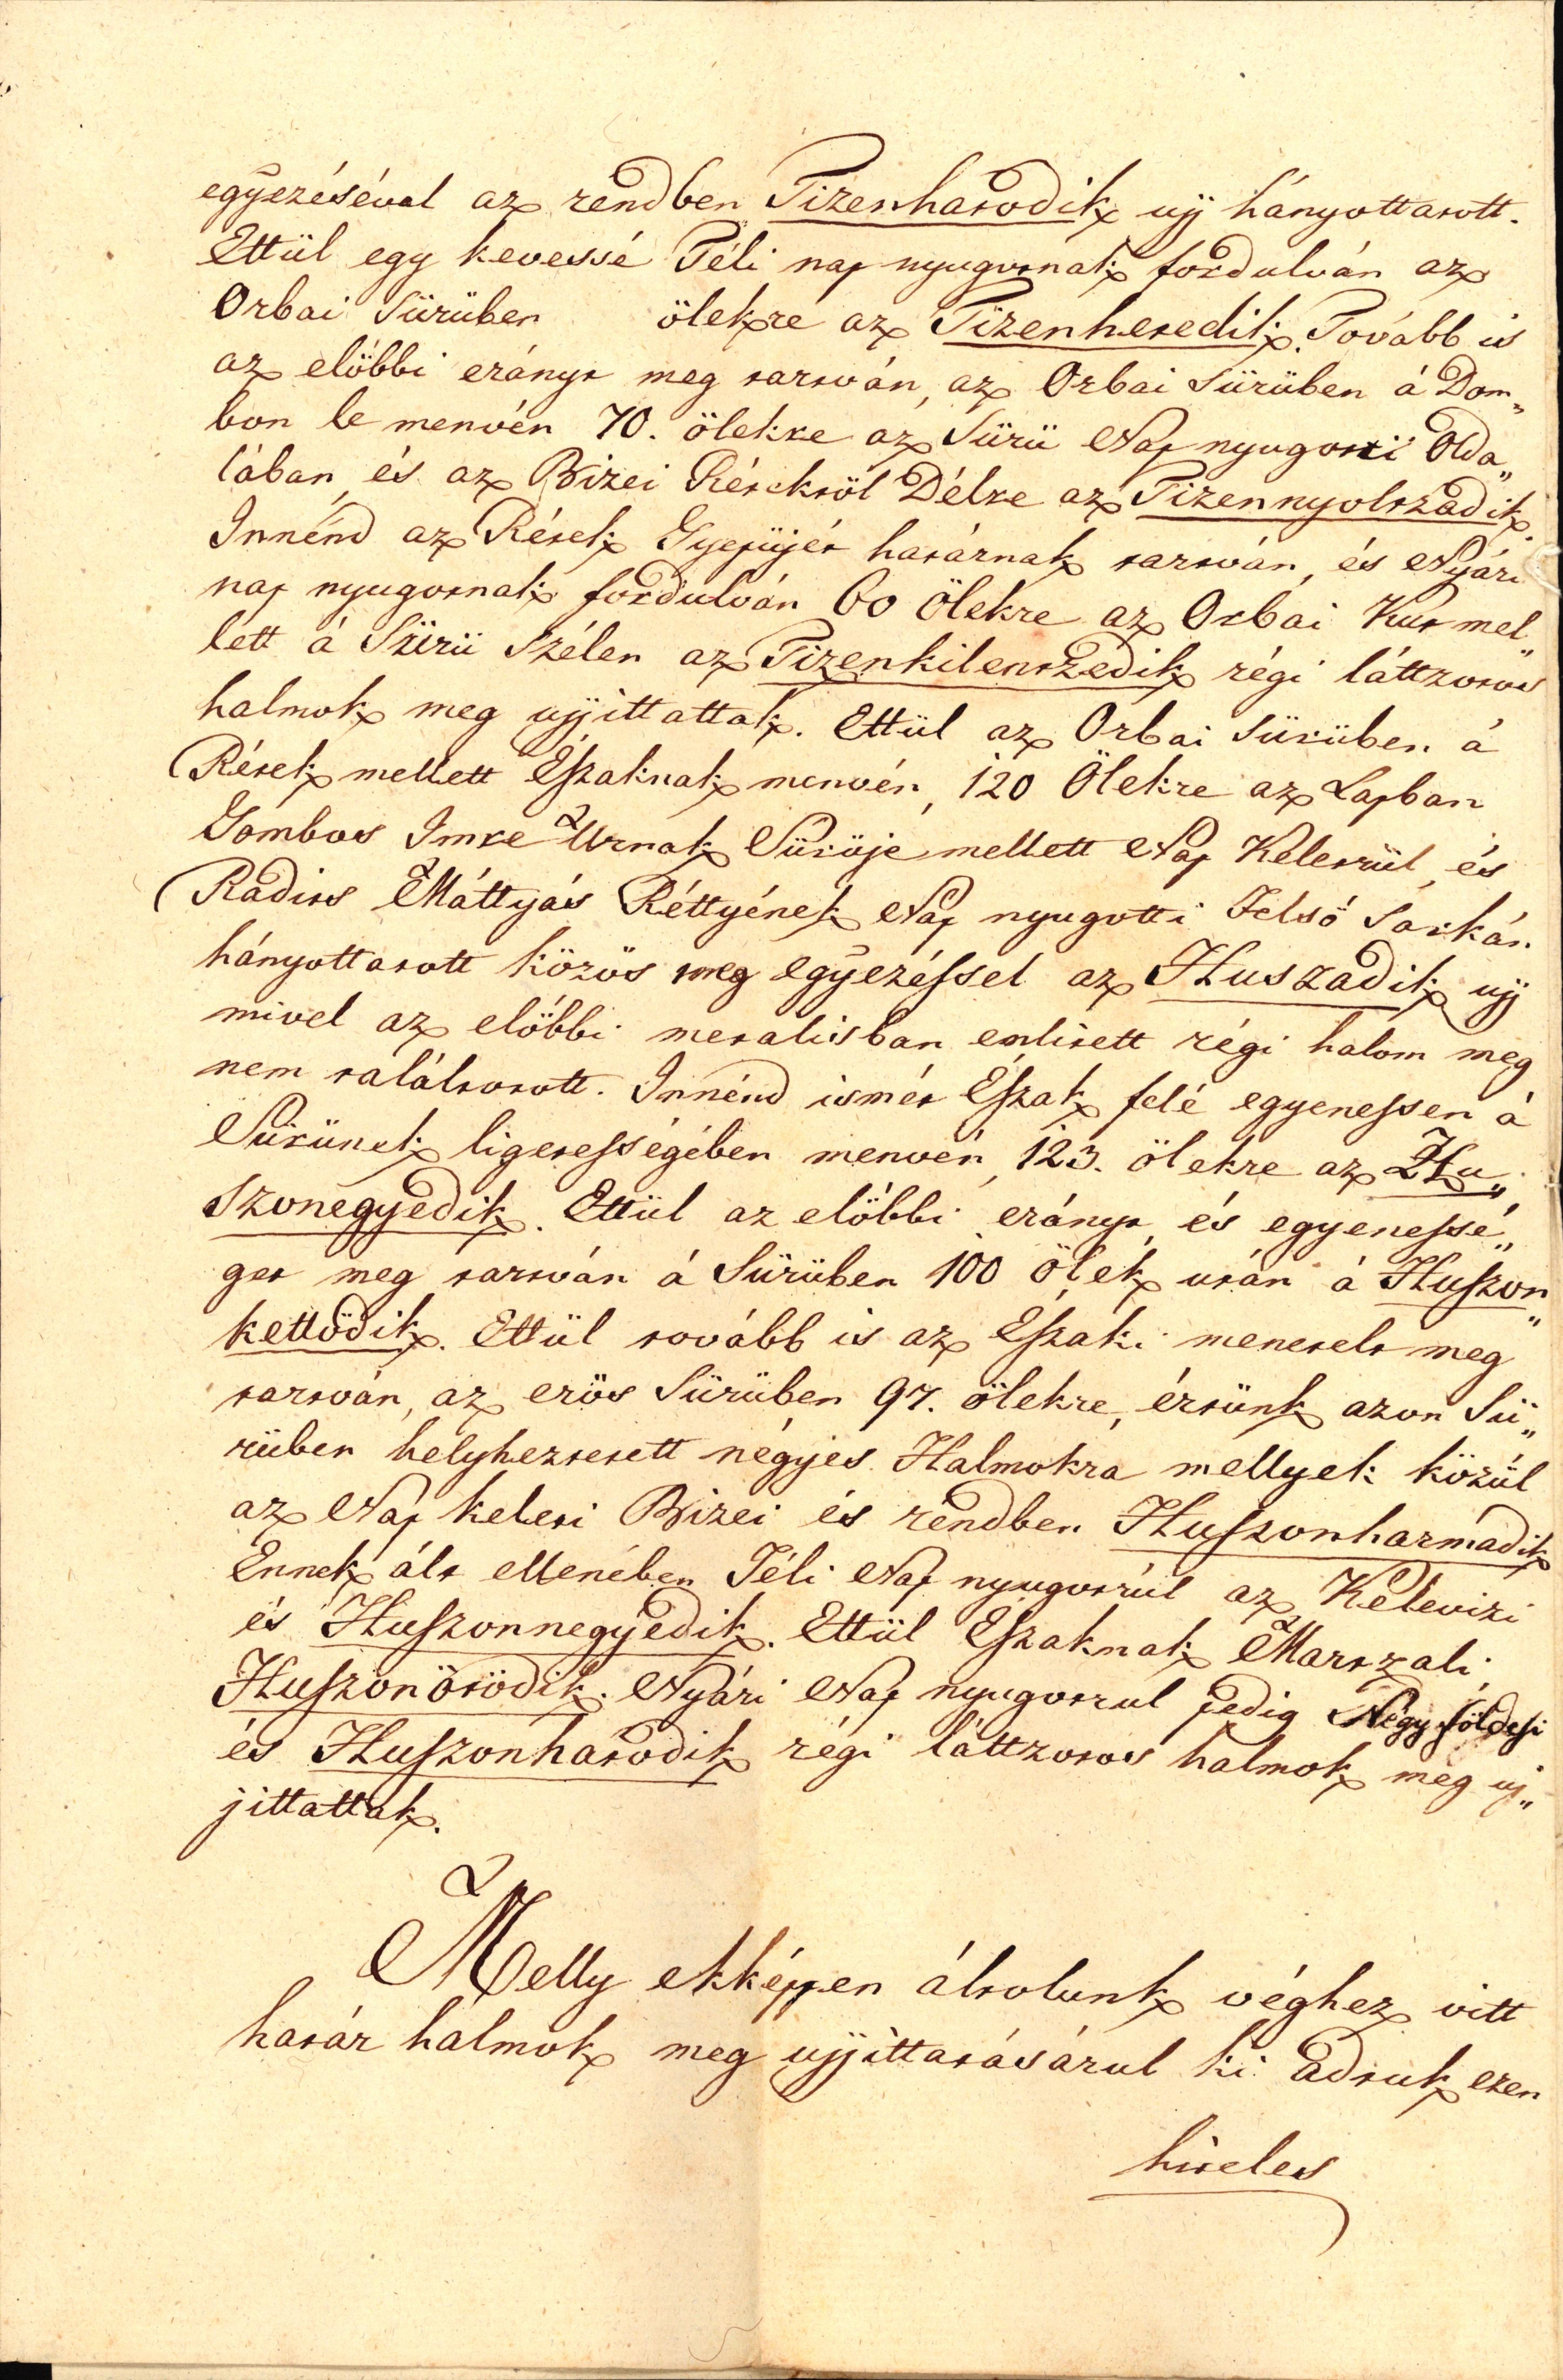 egÿezésével az rendben Tizenhatodik ujj hányottatott.
Ettül egy kevessé Téli nap nyugotnak fordulván az
Orbai Sürüben ölekre az Tizenhetedik. Tovább is
az elöbbi erányt meg tartván, az Orbai Sürüben á Dom„
bon le menvén 70. ölekre az Sürü Nap nyugotti Olda„
lában, és az Bizei Rétektöl Délre az Tizennyoltzadik.
Innénd az Rétek Gyepüjét határnak tartván, és Nyári
nap nyugotnak fordulván 60 Ölekre az Orbai Kut mel„
lett á Sürü Szélen az Tizenkilentzedik régi láttzotos
halmok meg ujjíttattak. Ettül az Orbai Sürüben á
Rétek mellett Éſzaknak menvén, 120 Ölekre az Lapban
Gombos Imre Urnak Sürüje mellett Nap Keletrül, és
Radits Máttyás Réttyének Nap nyugotti Felsö Sarkán
hányottatott közös meg egyezéſsel az Huszadik ujj
mivel az elöbbi metalisban emlitett régi halom meg
nem találtotott. Innénd ismét Eſzak felé egyeneſsen á
Sürünek ligeteſségében menvén, 123. ölekre az Hu„
szonegyedik. Ettül az elöbbi erányt, és egyeneſsé„
get meg tartván á Sürüben 100 Ölek után á Huſzon„
kettödik. Ettül tovább is az Eſzaki menetelt meg
tartván, az erös Sürüben 97. ölekre, értünk azon Sü„
rüben helyheztetett négÿes Halmokra mellyek közül
az Nap keleti Bizei és rendben Huſzonharmadik
Ennek ált ellenében Téli Nap nyugotrúl az Kelevizi
és Huſzonnegyedik. Ettül Eſzaknak Martzali
Huſzonötödik. Nyári Nap nyugotrul pedig Négy földeſi
és Huſzonhatodik régi láttzotos halmok meg uj„
jíttattak.
Melly ekképpen áltolunk véghez vitt
határ halmok meg ujjíttatásárul ki adtuk ezen
hiteles